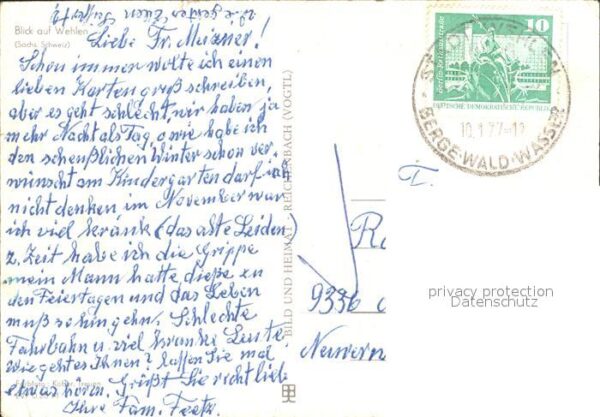 Blick auf Wehlen
(Sächs. Schweiz)
Liebe Fr. Meixner!
Schon immer wollte ich einen
lieben Kartengruß schreiben,
aber es geht schlecht, wir haben ja
mehr Nacht als Tag, o wie habe ich
den scheußlichen Winter schon ver
wünscht am Kindergarten darf ich
nicht denken, im November war
ich viel krank (das alte Leiden)
z. Zeit habe ich die Grippe
mein Mann hatte dieße zu
den Feiertagen und das Leben
muß so hingehn. Schlechte
Fahrbahn u. viel kranke Leute
wie geht es Ihnen? lassen Sie mal
etwas hören. Grüßt Sie recht lieb
Ihre Fam.
BILD UND HEIMAT · REICHENBACH (VOGTL)
10
DEUTSCHE DEMOKRATISCHE REPUBLIK
STADT WEHLEN
10.1.77-12
BERGE·WALD·WASSER
9336
privacy protection
Datenschutz